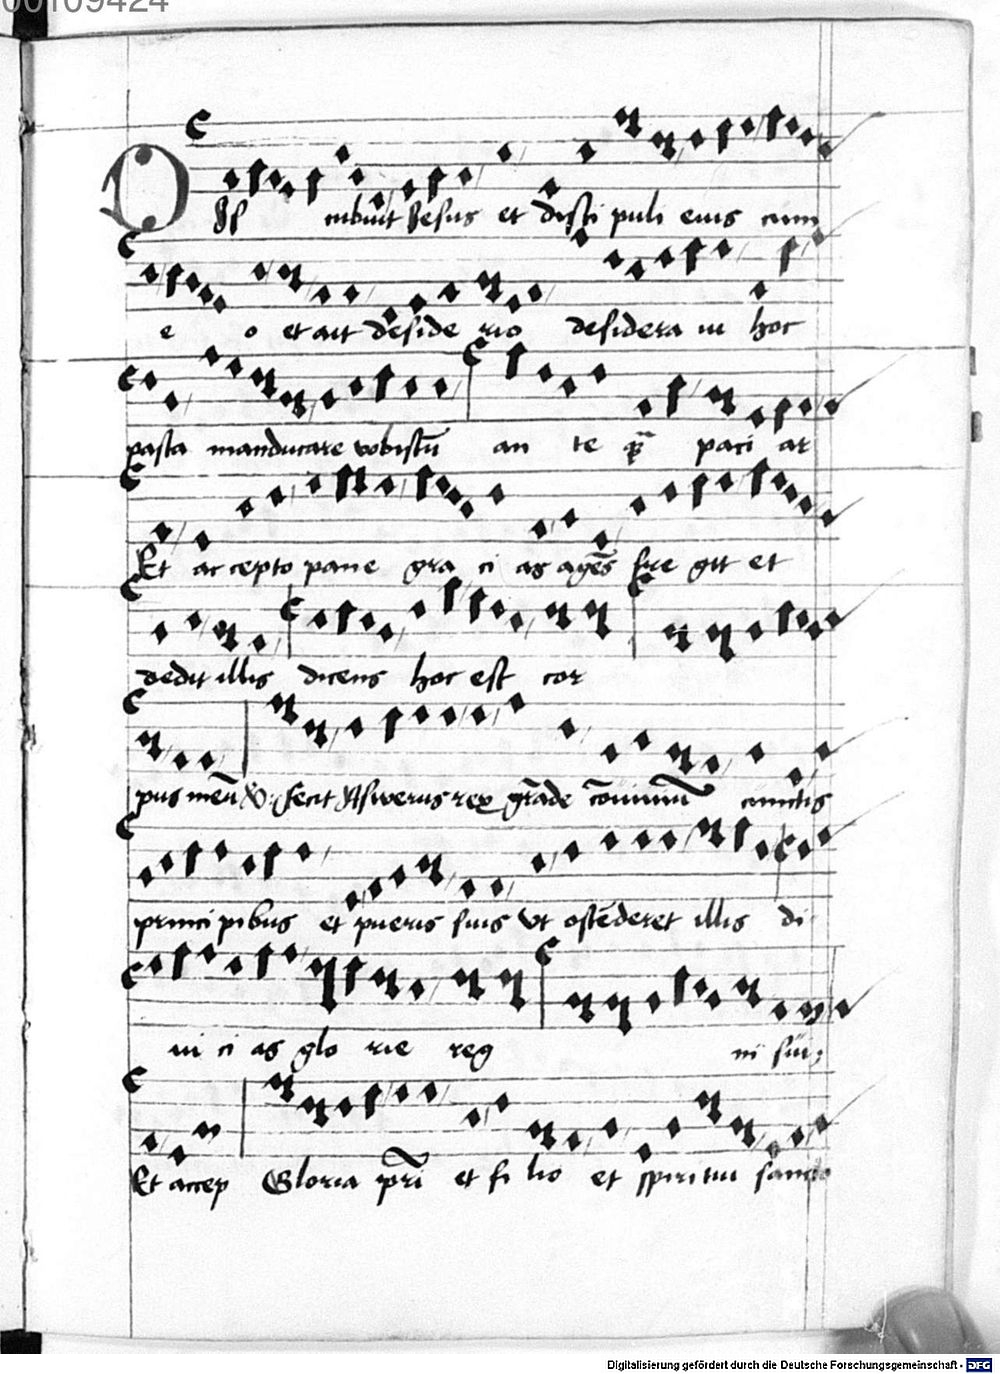 00109424
Dis cubuit Jesus et disci puli eius cum
e o et ait deside rio desidera ui hoc
pasta manducare vobiscū an te q̄ paci ar
Et accepto pane gra ci as agēs fre git et
dedit illis dicens hoc est cor
pus meū V. fecit Aswerus rex grāde cōuiuiū cunctis
principibus et pueris suis Vt ostēderet illis di
ui ci as glo rie reg ni sui;
Et accep Gloria pr̄i et fi lio et spiritui sancto
Digitalisierung gefördert durch die Deutsche Forschungsgemeinschaft - DFG